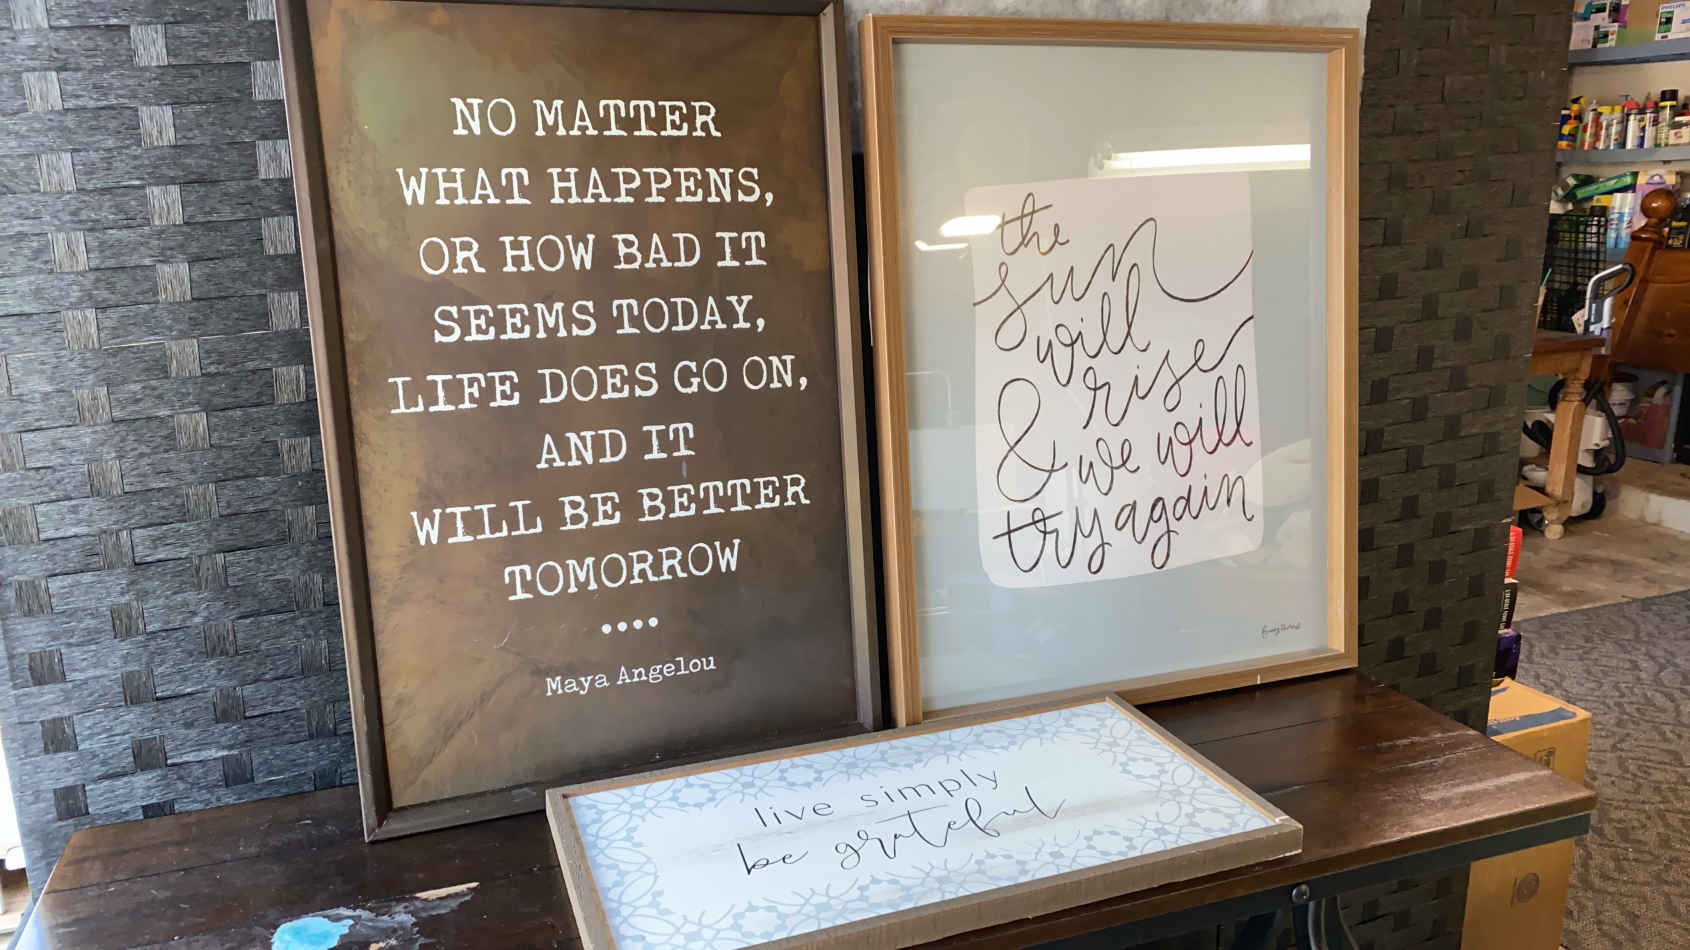 NO MATTER
WHAT HAPPENS,
OR HOW BAD IT
SEEMS TODAY,
LIFE DOES GO ON,
AND IT
WILL BE BETTER
TOMORROW
Maya Angelou
the
sun
will
rise
& we will
try again
live simply
be grateful
PHILIPS